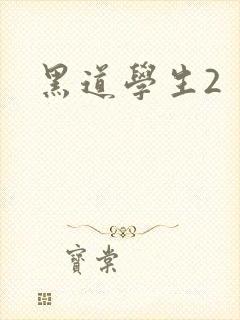 黑道學生2
寶棠